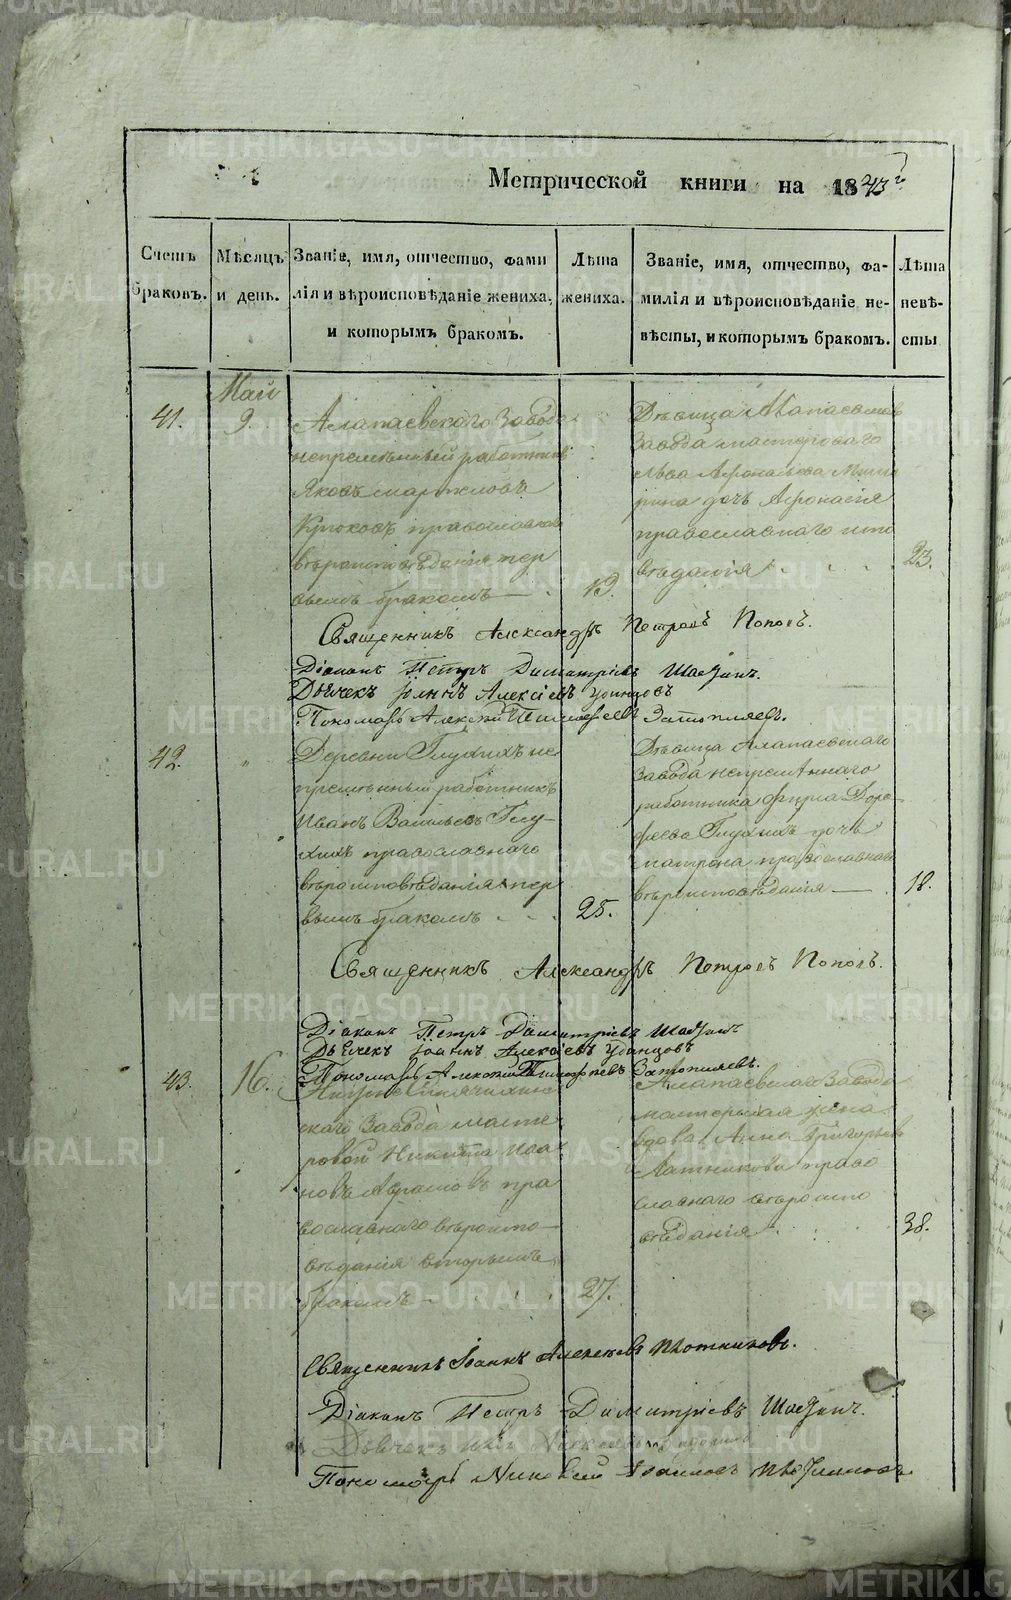 Метрической книги на 1843 г
Счетъ браковъ.
Мѣсяцъ и день.
Званіе, имя, отчество, фами
лія и вѣроисповѣданіе жениха,
и которымъ бракомъ.
Лѣта
жениха.
Званіе, имя, отчество, фа-
милія и вѣроисповѣданіе не-
вѣсты, и которымъ бракомъ.
Лѣта
невѣ-
сты
41.
Май
9
Алапаевскаго Завода
непремѣнный работникъ
Яковъ
Крюковъ православнаго
вѣроисповѣданія пер
вымъ бракомъ
19.
Дѣвица Алапаевскаго
Завода мастероваго
дочь Афонасія
православнаго испо
вѣданія
23.
Священникъ Александръ Петровъ Поповъ.
Діаконъ Петръ Димитріевъ
Дьячекъ Іоаннъ Алексіевъ Удинцовъ
Пономарь Алексѣй Тимофеевъ Затопляевъ.
42.
"
Деревни Глухихъ не
премѣнный работникъ
Иванъ Васильевъ Глу
хихъ православнаго
вѣроисповѣданія пер
вымъ бракомъ
25.
Дѣвица Алапаевскаго
Завода непремѣннаго
работника Фирса Доро
феева Глухихъ дочь
матрона православнаго
вѣроисповѣданія
18.
Священникъ Александръ Петровъ Поповъ.
Діаконъ Петръ Димитріевъ
Дьячекъ Іоаннъ Алексіевъ Удинцовъ
Пономарь Алексѣй Тимофеевъ Затопляевъ.
43.
16.
скаго Завода масте
ровой Никита Ива
новъ Абрамовъ пра
вославнаго вѣроиспо
вѣданія вторымъ
бракомъ
27.
Алапаевскаго Завода
мастерская жена
вдова Анна Григорьева
Латникова право
славнаго вѣроиспо
вѣданія
38.
Священникъ Іоаннъ Алексѣевъ Плотниковъ.
Діаконъ Петръ Димитріевъ
Дьячекъ
Пономарь
METRIKI.GASO-URAL.RU